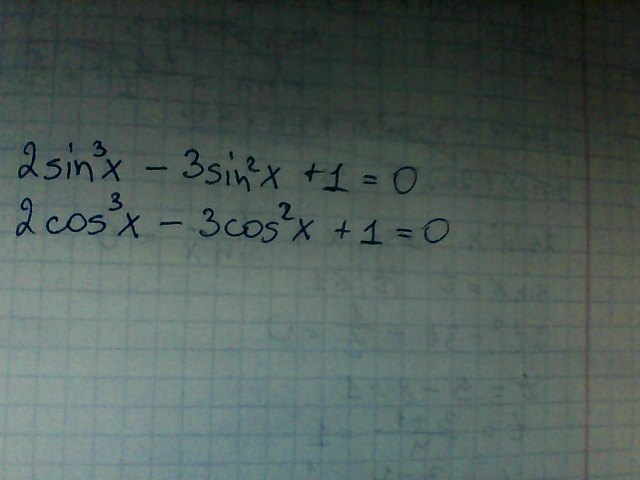 2sin³x − 3sin²x + 1 = 0
2cos³x − 3cos²x + 1 = 0